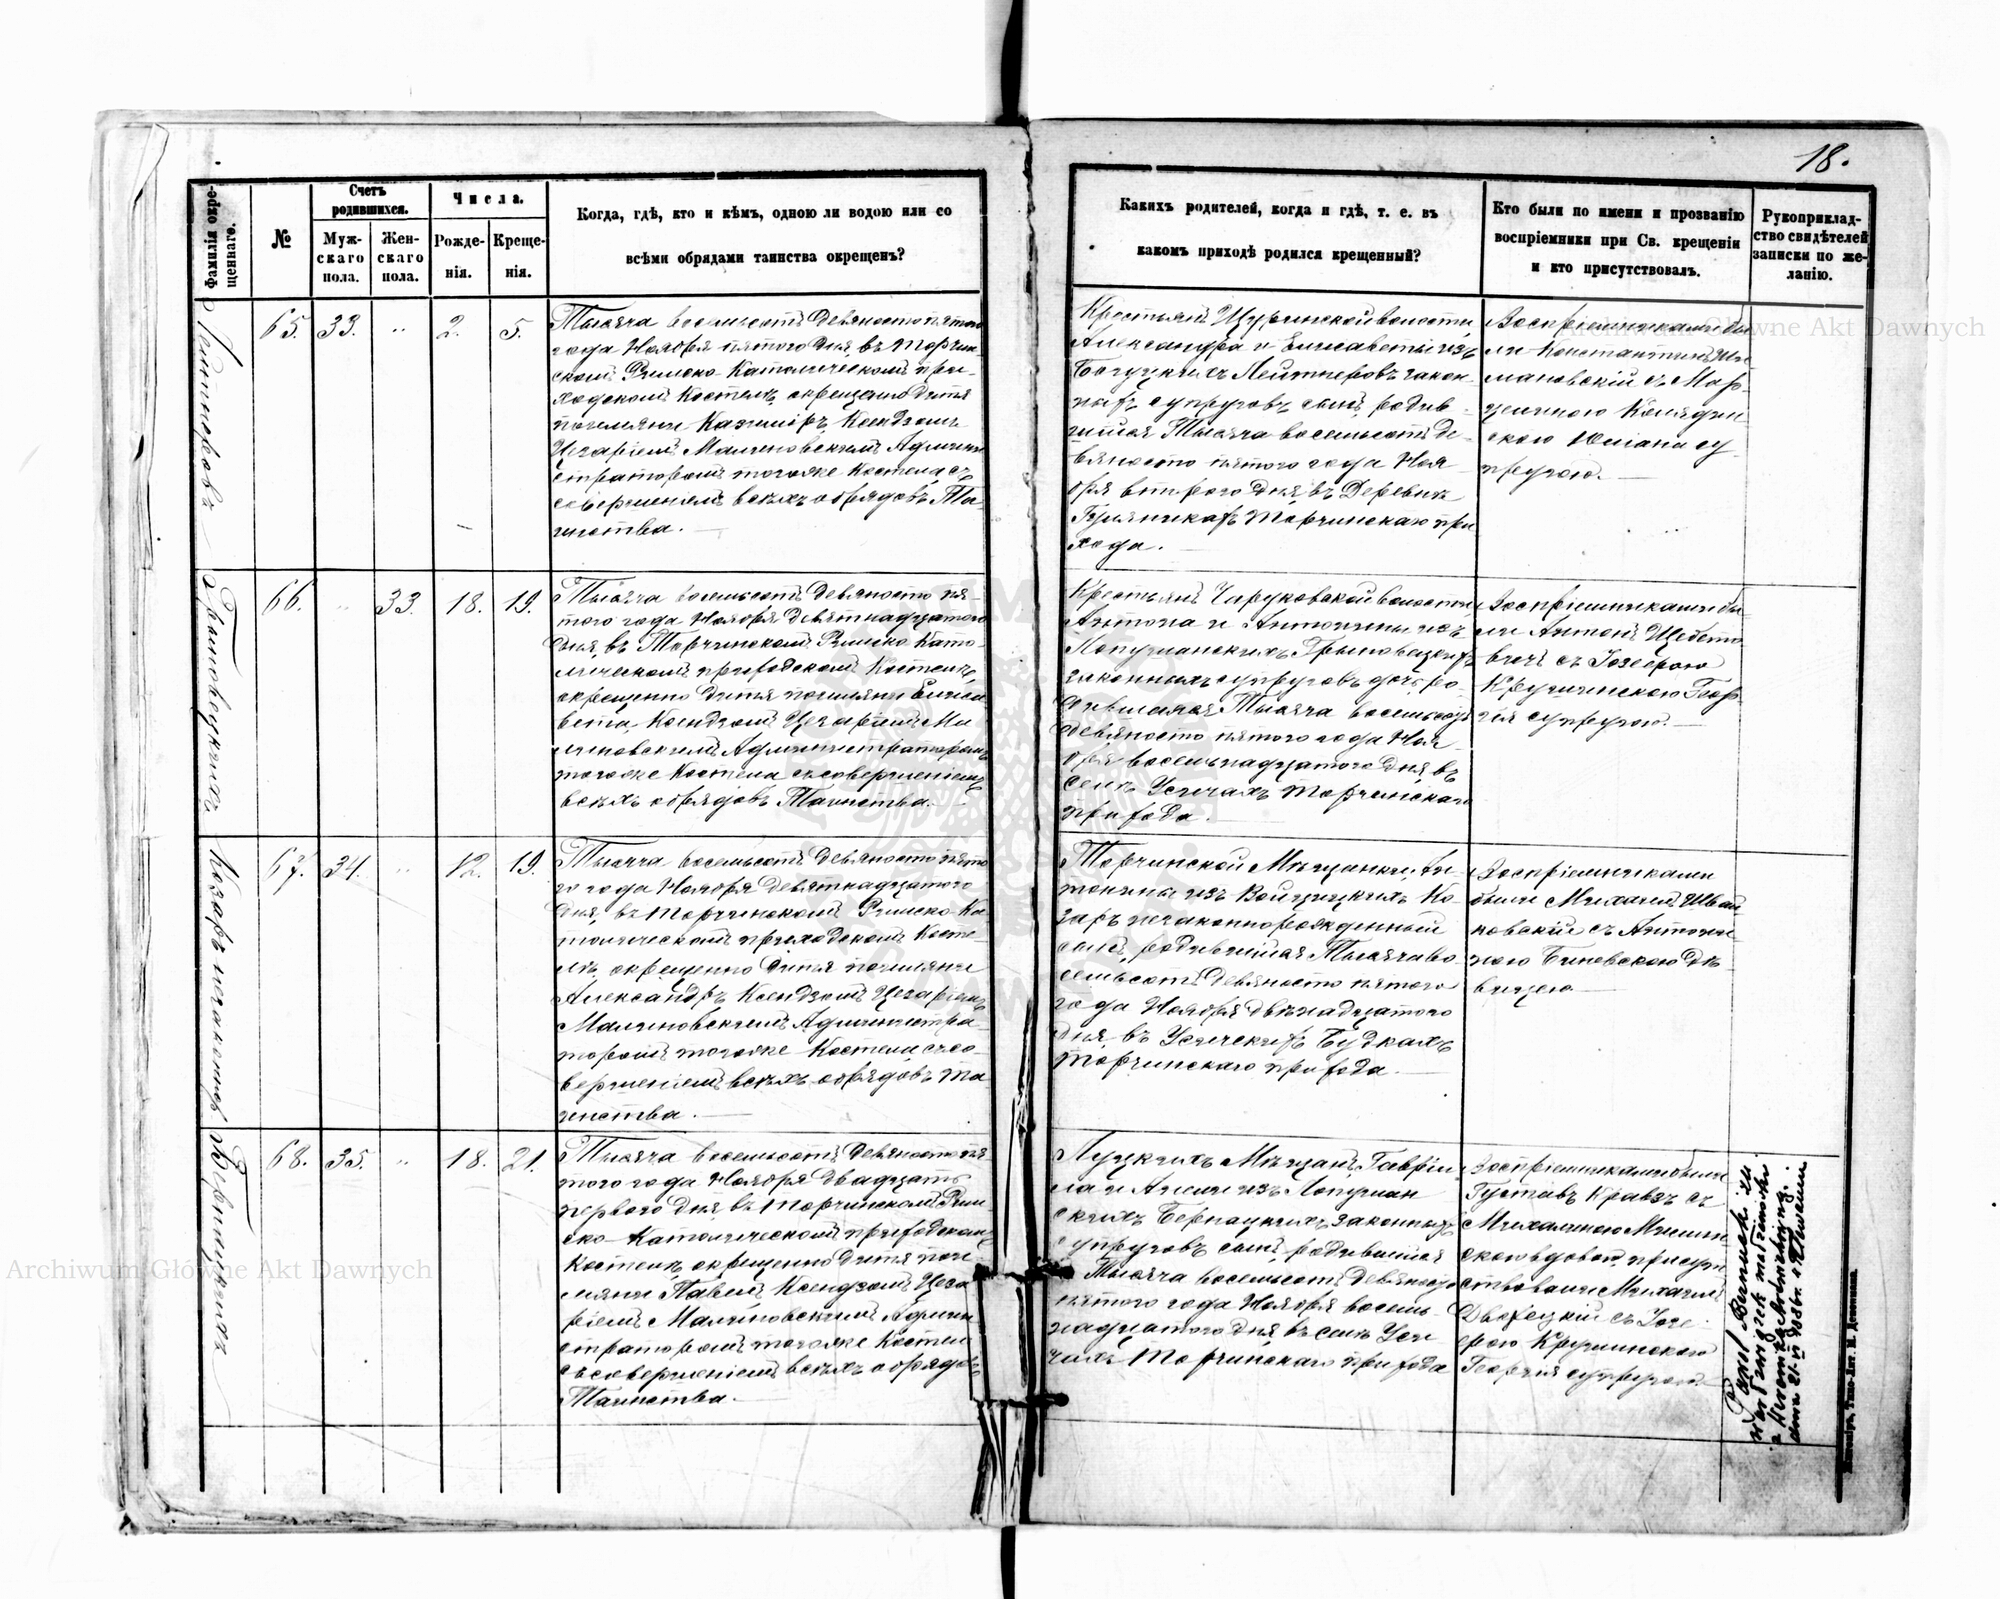 18.
Фамилія окре-
щеннаго.
№
Счетъ
родившихся.
Муж-
скаго
пола.
Жен-
скаго
пола.
Числа.
Рожде-
нія.
Креще-
нія.
Когда, гдѣ, кто и кѣмъ, одною ли водою или со
всѣми обрядами таинства окрещенъ?
Какихъ родителей, когда и гдѣ, т. е. въ
какомъ приходѣ родился крещенный?
Кто были по имени и прозванію
воспріемники при Св. крещеніи
и кто присутствовалъ.
Рукоприклад-
ство свидѣтелей
записки по же-
ланію.
Лейтнеровъ
65. 33. " 2. 5.
Тысяча восемьсотъ девяносто пятого
года Ноября пятого дня, въ Торчин-
скомъ Римско-Католическомъ при-
ходскомъ Костелѣ, окрещено дитя
именемъ Казиміръ, Ксендзомъ
Цезаріемъ Малиновскимъ Админи-
страторомъ тогоже Костела съ
совершеніемъ всѣхъ обрядовъ Та-
инства.
Крестьянъ Щуринской волости
Александра и Елисаветы изъ
Богуцкихъ Лейтнеровъ закон-
ныхъ супруговъ сынъ, родив-
шійся Тысяча восемьсотъ де-
вяносто пятого года Ноя-
бря второго дня, въ Деревнѣ
Торчинскаго при-
хода.
Воспріемниками бы-
ли Константинъ
съ Мар-
целиною
скою Юліана су-
пругою.
Грыновецкихъ
66. " 33. 18. 19.
Тысяча восемьсотъ девяносто пя-
того года Ноября девятнадцатого
дня, въ Торчинскомъ Римско-Като-
лическомъ приходскомъ Костелѣ,
окрещено дитя именемъ Елиса-
вета, Ксендзомъ Цезаріемъ Ма-
линовскимъ Администраторомъ
тогоже Костела съ совершеніемъ
всѣхъ обрядовъ Таинства.
Крестьянъ Чаруковской волости,
Антона и Антонины изъ
Лопушанскихъ Грыновецкихъ
законныхъ супруговъ дочь, ро-
дившаяся Тысяча восемьсотъ
девяносто пятого года Ноя-
бря восемнадцатого дня, въ
селѣ Усичахъ Торчинскаго
прихода.
Воспріемниками бы-
ли Антонъ
съ Іозефою
Кручинскою Геор-
гія супругою.
Козаръ незаконный
67. 34. " 12. 19.
Тысяча восемьсотъ девяносто пято-
го года Ноября девятнадцатого
дня, въ Торчинскомъ Римско-Ка-
толическомъ приходскомъ Косте-
лѣ, окрещено дитя именемъ
Александръ Ксендзомъ Цезаріемъ
Малиновскимъ Администра-
торомъ тогоже Костела съ со-
вершеніемъ всѣхъ обрядовъ Та-
инства.
Торчинской Мѣщанки Ан-
тонины изъ Войцицкихъ Ко-
заръ незаконнорожденный
сынъ, родившійся Тысяча во-
семьсотъ девяносто пятого
года Ноября двѣнадцатого
дня, въ Усичскихъ Будкахъ
Торчинскаго прихода.
Воспріемниками
были Михаилъ
съ Антони-
ною Биневскою дѣ-
вицею
Бернацкихъ
68. 35. " 18. 21.
Тысяча восемьсотъ девяносто пя-
того года Ноября двадцать
первого дня, въ Торчинскомъ Рим-
ско-Католическомъ приходскомъ
Костелѣ, окрещено дитя име-
немъ Павелъ Ксендзомъ Цеза-
ріемъ Малиновскимъ Админи-
страторомъ тогоже Костела
съ совершеніемъ всѣхъ обрядовъ
Таинства.
Луцкихъ Мѣщанъ, Гаврі-
ила и изъ Лопушан-
скихъ Бернацкихъ законныхъ
супруговъ сынъ, родившійся
Тысяча восемьсотъ девяносто
пятого года Ноября восемь-
надцатого дня, въ селѣ Уси-
чахъ Торчинскаго прихода
Воспріемниками были
Густавъ Кравзъ съ
Михалиною
скою вдовою, присут-
ствовали Михаилъ
Дворецкій съ Іозе-
фою Кручинскою
Георгія супругою.
Paweł Bernacki
związek małżeński
Archiwum Główne Akt Dawnych
Archiwum Główne Akt Dawnych